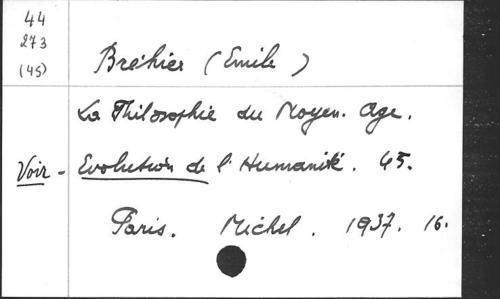 44
273
(45)
Bréhier (Emile)
La Philosophie du Moyen. Age.
Voir - Evolution de l'Humanité. 45.
Paris. Michel. 1937. 16.